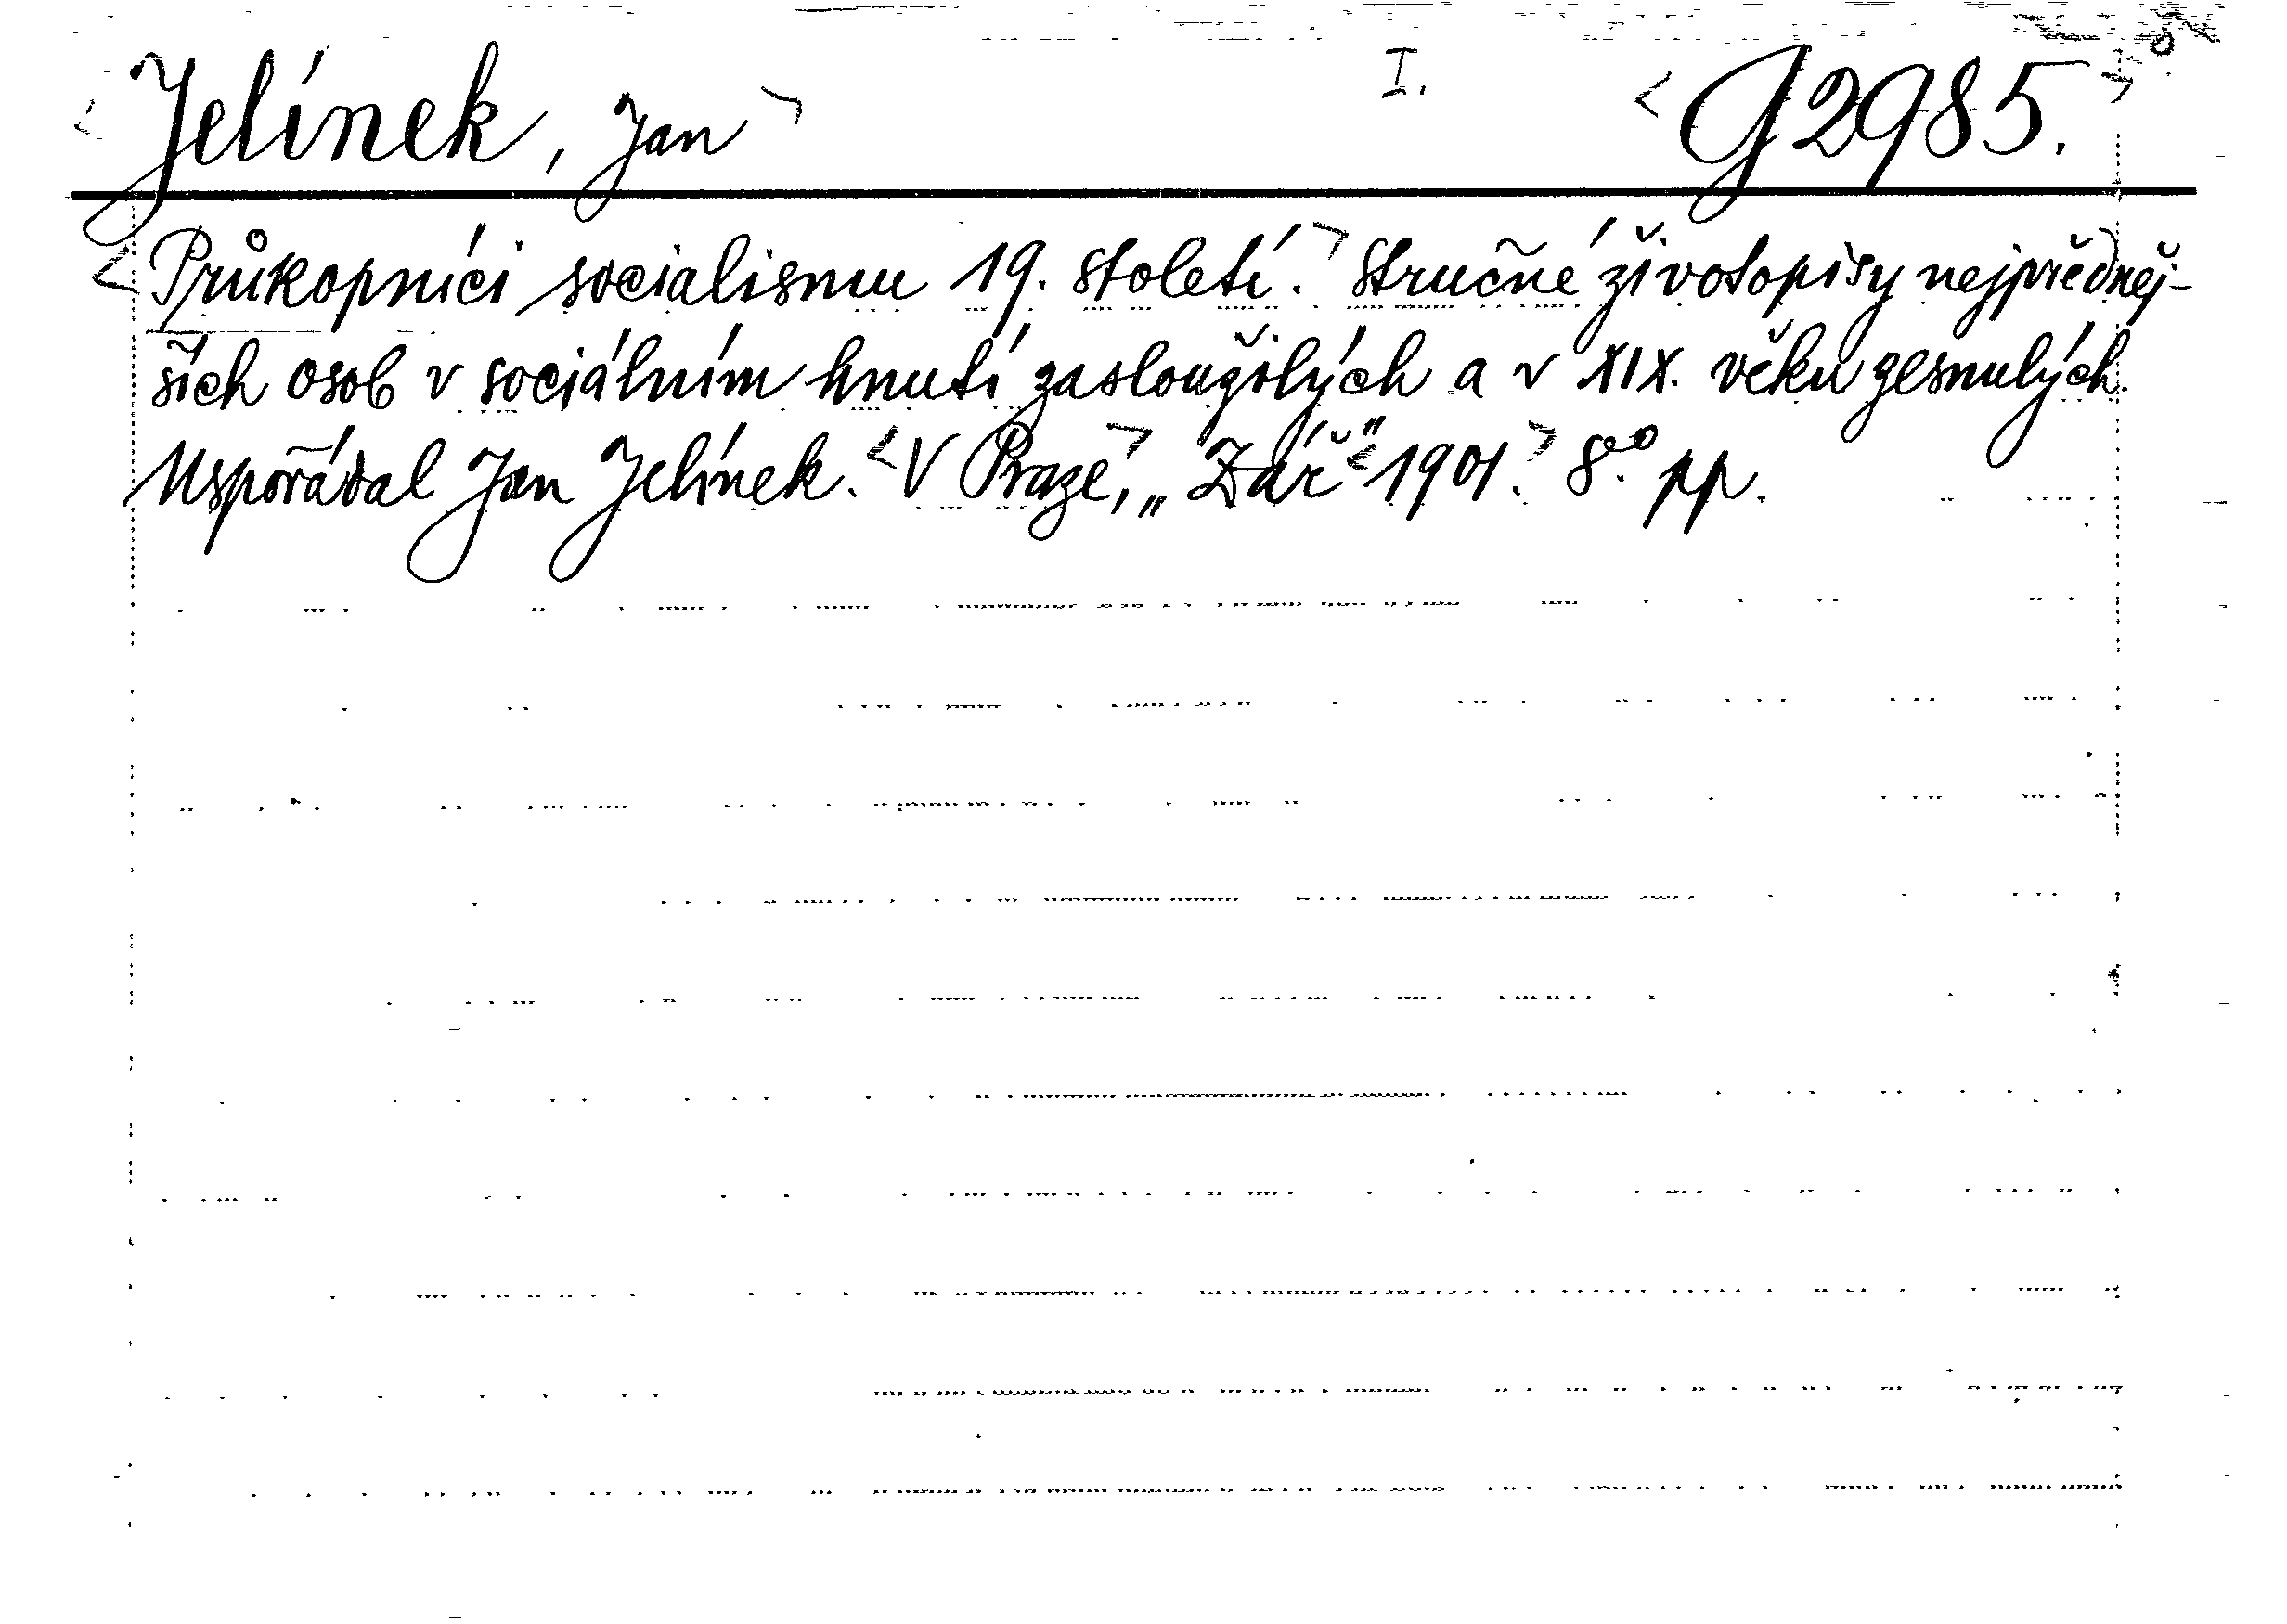 <Jelínek, Jan> I. <G 2985.>
<Průkopníci socialismu 19. století.> Stručné životopisy nejpředněj-
ších osob v sociálním hnutí zasloužilých a v XIX. věku zesnulých.
Uspořádal Jan Jelínek. <V Praze,> „Zář“ <1901.> 8.° pp.